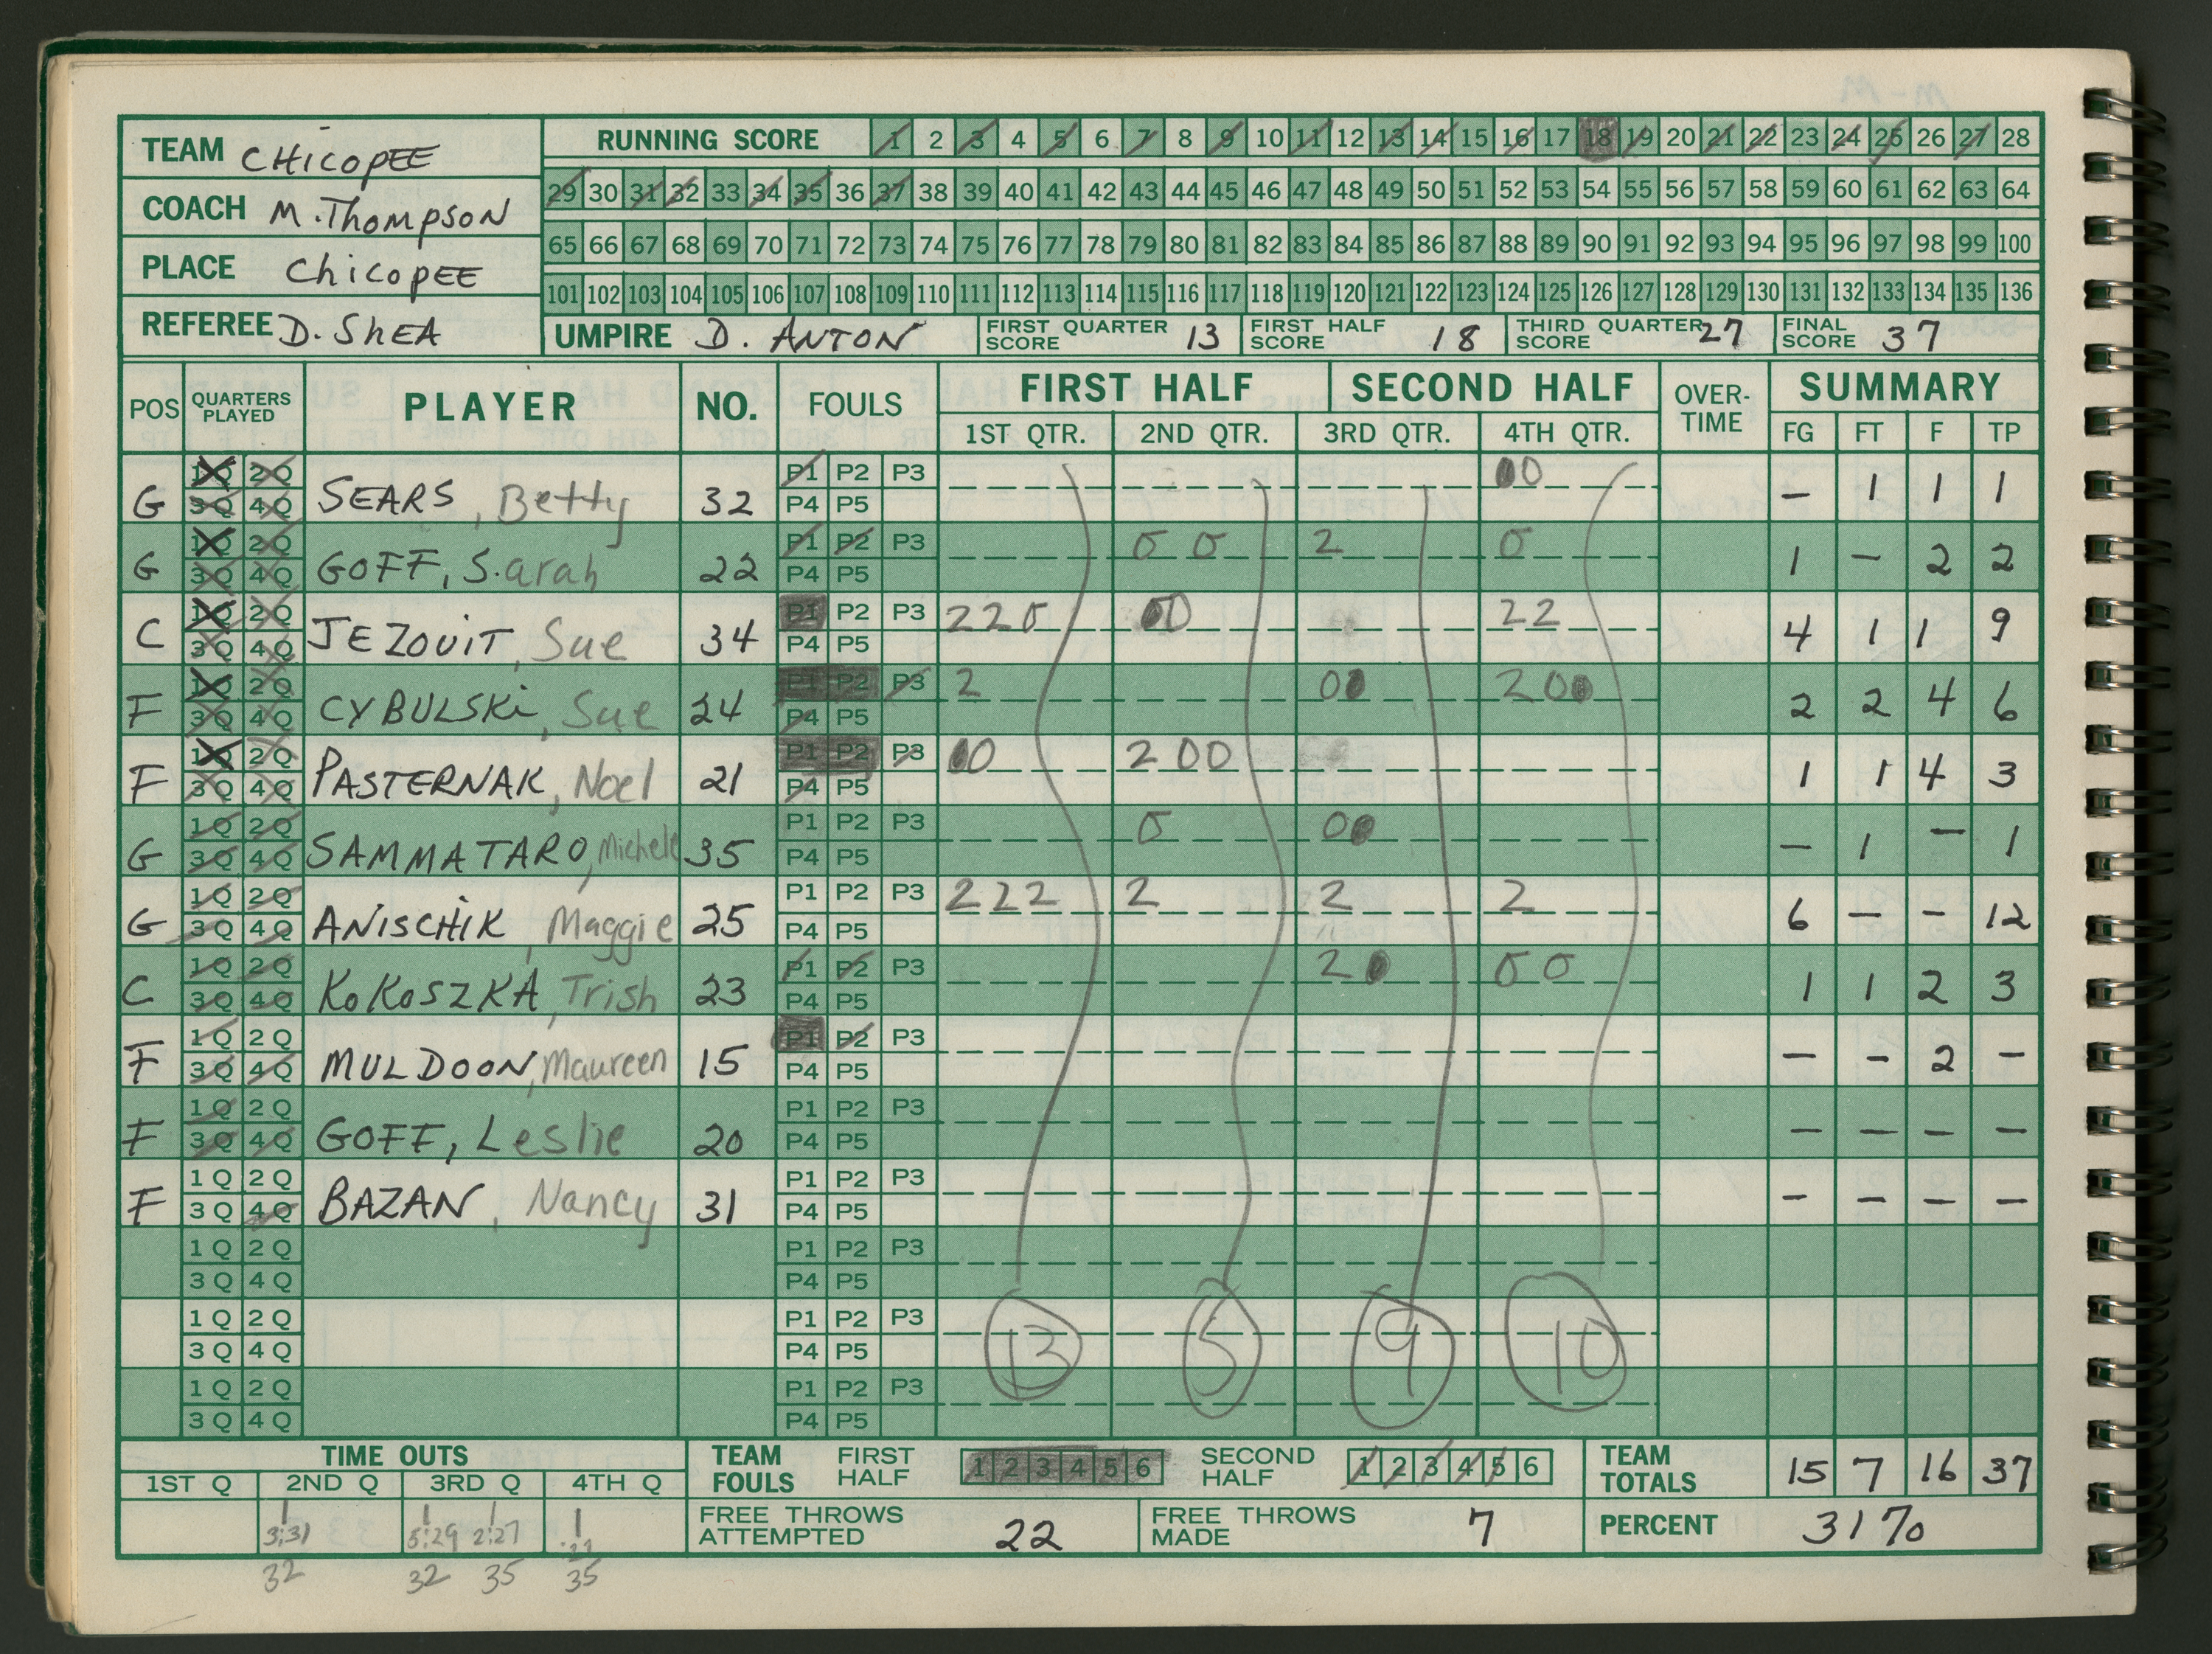 TEAM CHicopEE
RUNNING SCORE 1 2 3 4 5 6 7 8 9 10 11 12 13 14 15 16 17 18 19 20 21 22 23 24 25 26 27 28
COACH M. Thompson
29 30 31 32 33 34 35 36 37 38 39 40 41 42 43 44 45 46 47 48 49 50 51 52 53 54 55 56 57 58 59 60 61 62 63 64
PLACE ChicopEE
65 66 67 68 69 70 71 72 73 74 75 76 77 78 79 80 81 82 83 84 85 86 87 88 89 90 91 92 93 94 95 96 97 98 99 100
101 102 103 104 105 106 107 108 109 110 111 112 113 114 115 116 117 118 119 120 121 122 123 124 125 126 127 128 129 130 131 132 133 134 135 136
REFEREE D. ShEA
UMPIRE D. ANTON FIRST QUARTER SCORE 13 FIRST HALF SCORE 18 THIRD QUARTER SCORE 27 FINAL SCORE 37
POS QUARTERS PLAYED PLAYER NO. FOULS FIRST HALF SECOND HALF OVER-TIME SUMMARY
1ST QTR. 2ND QTR. 3RD QTR. 4TH QTR. FG FT F TP
1Q 2Q P1 P2 P3 00
G 3Q 4Q SEARS, Betty 32 P4 P5 – 1 1 1
1Q 2Q P1 P2 P3 0 0 2 0
G 3Q 4Q GOFF, Sarah 22 P4 P5 1 – 2 2
1Q 2Q P1 P2 P3 2 2 0 00 2 2
C 3Q 4Q JEZOUIT, Sue 34 P4 P5 4 1 1 9
1Q 2Q P1 P2 P3 2 00 2 0 0
F 3Q 4Q CYBULSKi, Sue 24 P4 P5 2 2 4 6
1Q 2Q P1 P2 P3 00 2 0 0
F 3Q 4Q PASTERNAK, Noel 21 P4 P5 1 1 4 3
1Q 2Q P1 P2 P3 0 00
G 3Q 4Q SAMMATARO, Michele 35 P4 P5 – 1 – 1
1Q 2Q P1 P2 P3 2 2 2 2 2 2
G 3Q 4Q ANiSCHiK, Maggie 25 P4 P5 6 – – 12
1Q 2Q P1 P2 P3 2 0 0 0
C 3Q 4Q KoKoSZKA, Trish 23 P4 P5 1 1 2 3
1Q 2Q P1 P2 P3
F 3Q 4Q MULDOON, Maureen 15 P4 P5 – – 2 –
1Q 2Q P1 P2 P3
F 3Q 4Q GOFF, Leslie 20 P4 P5 – – – –
1Q 2Q P1 P2 P3
F 3Q 4Q BAZAN, Nancy 31 P4 P5 – – – –
1Q 2Q P1 P2 P3
3Q 4Q P4 P5
1Q 2Q P1 P2 P3
3Q 4Q P4 P5 13 5 9 10
1Q 2Q P1 P2 P3
3Q 4Q P4 P5
TIME OUTS TEAM FOULS FIRST HALF 1 2 3 4 5 6 SECOND HALF 1 2 3 4 5 6 TEAM TOTALS 15 7 16 37
1ST Q 2ND Q 3RD Q 4TH Q
3:31 5:29 2:27
FREE THROWS ATTEMPTED 22 FREE THROWS MADE 7 PERCENT 31%
32 32 35 35